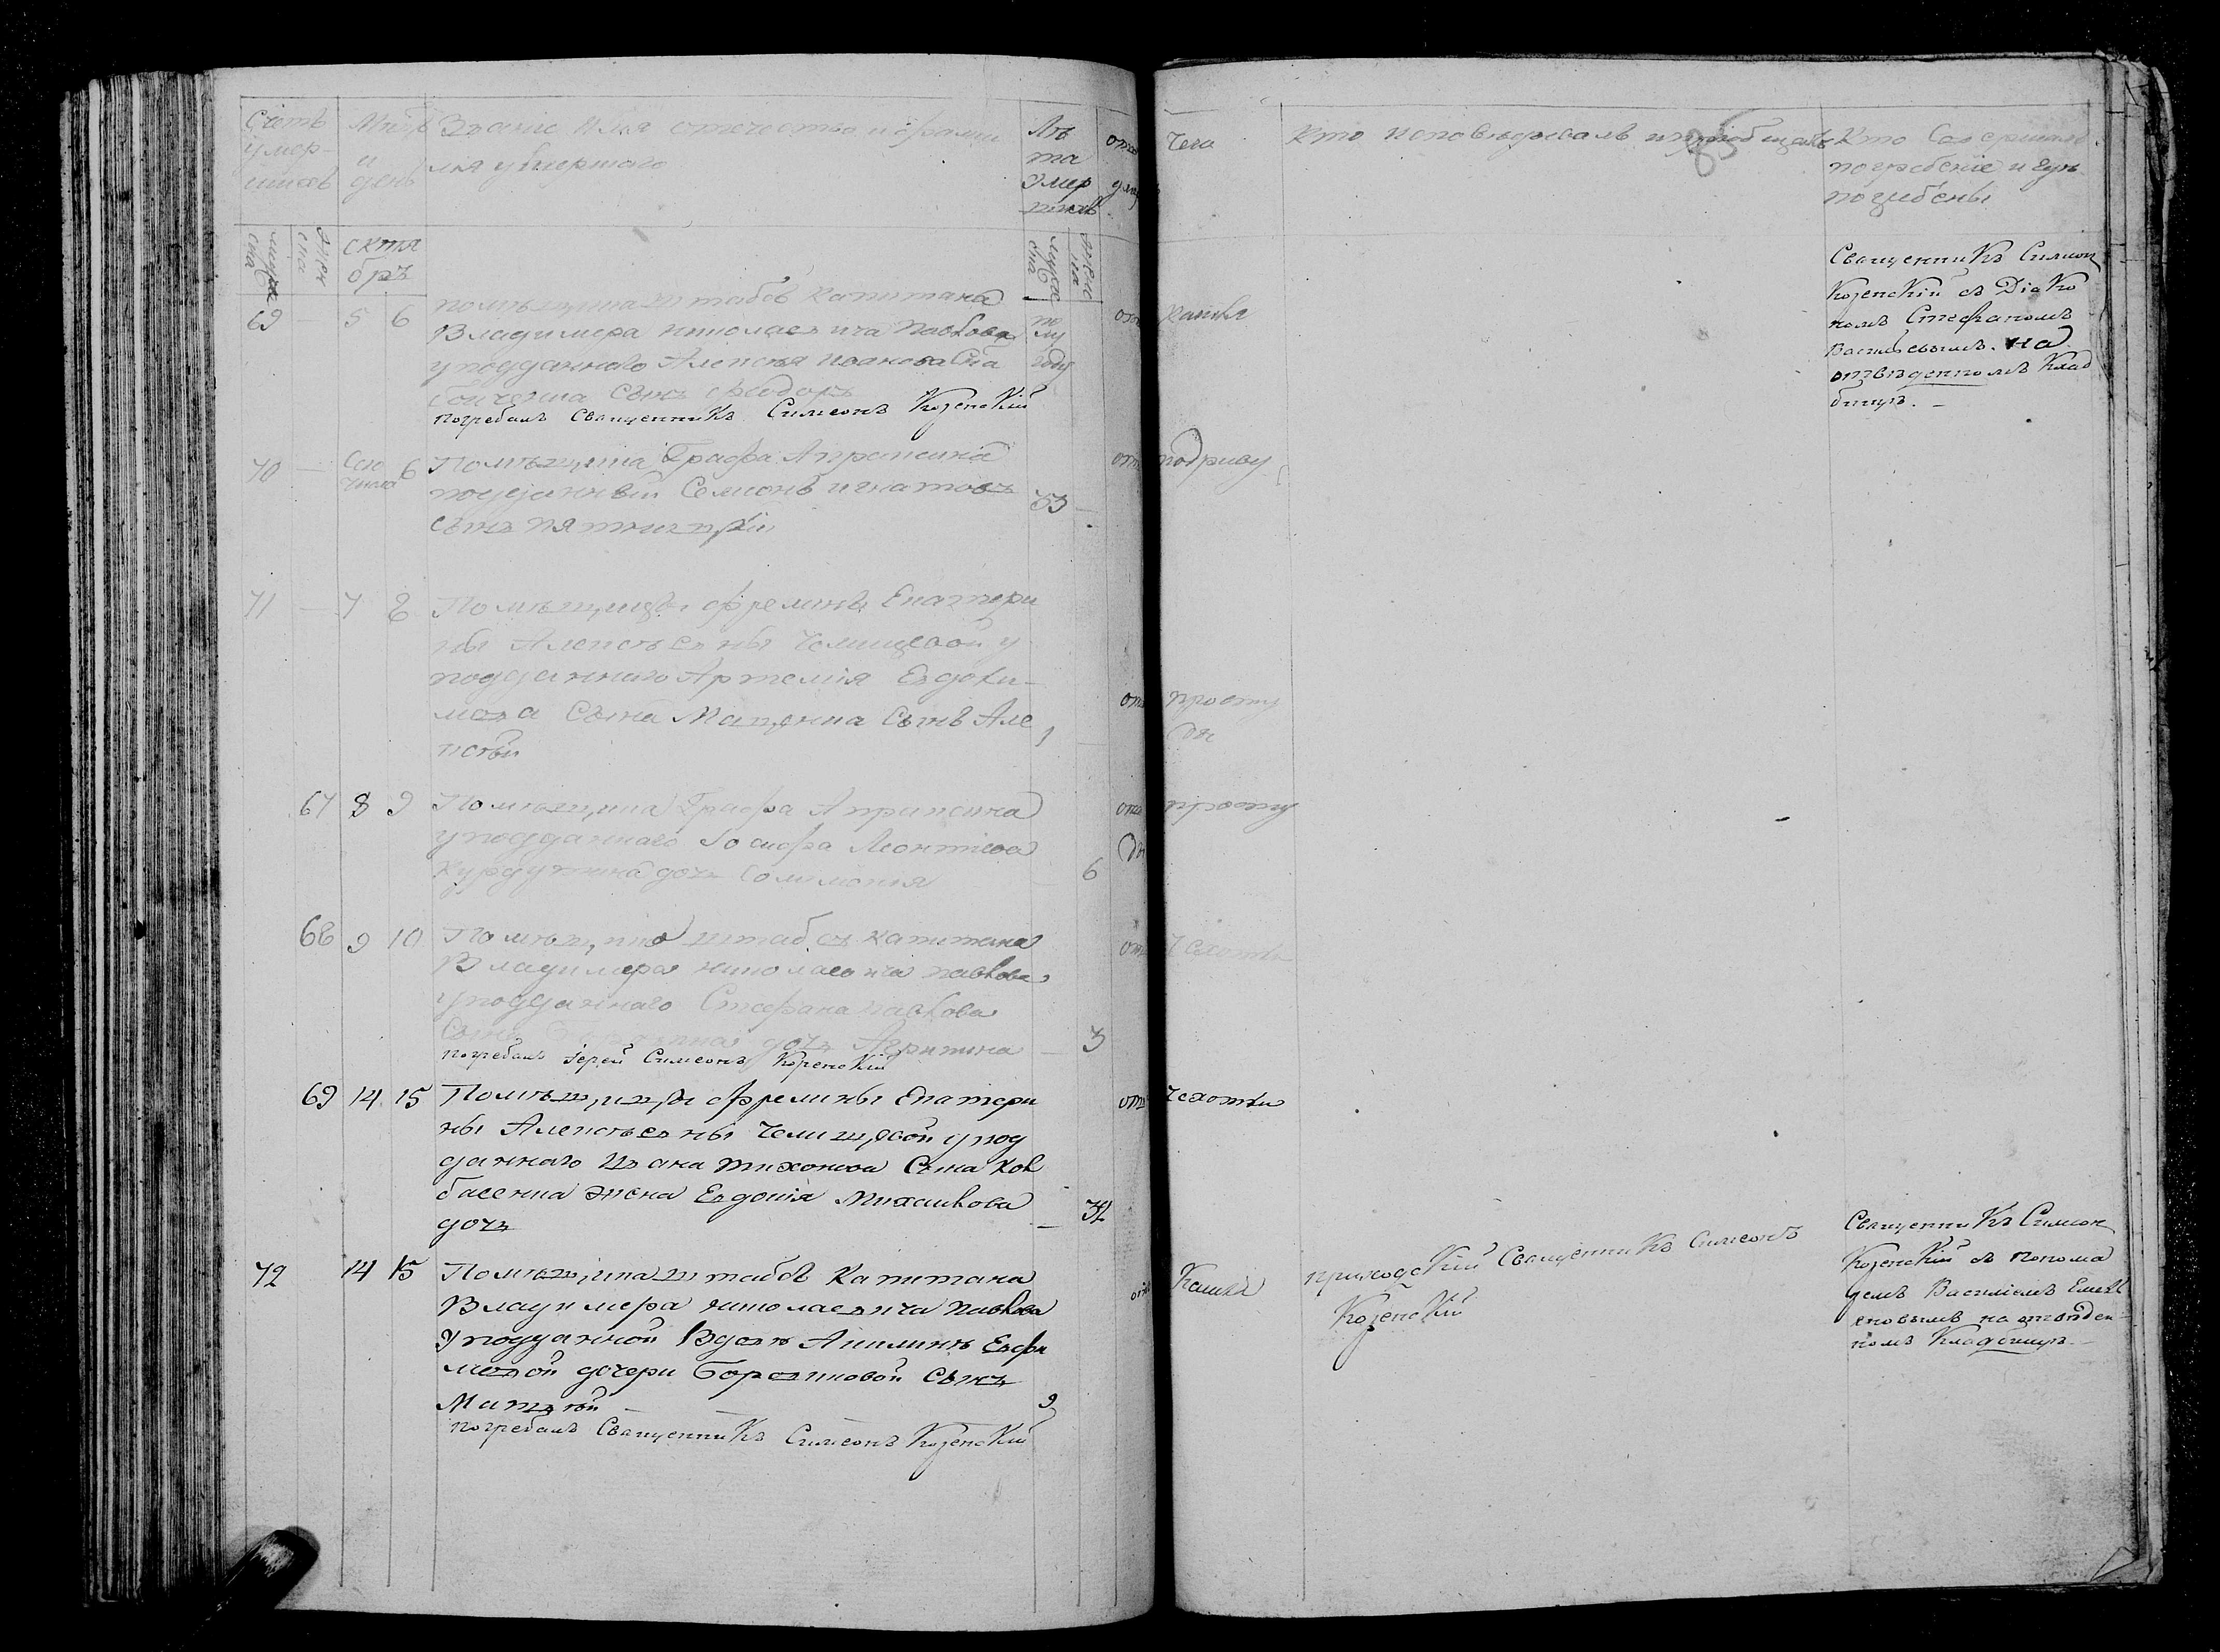 Счетъ умер-шихъ
Мцъ и день
Званіе Имя отечество и фами
лія умершаго
Лѣ
та
Умер
шихъ
отъ
чего
Кто исповѣдывалъ и пріобщалъ
85
Кто Совершалъ
погребеніе и гдѣ
погребены
муже
ска
жен
ска
октя
брь
муже
ска
женс
ка
69 5 6
помѣщика штабсъ капитана
Владимера николаевича павлова
у подданного Алексѣя иванова Сна
Сынъ федоръ
погребалъ Священникъ Симеонъ
по
лу
году
отъ кашля
Священникъ Симеон
съ Діако
номъ Стефаномъ
Васильевымъ на
отведенномъ Клад
бищѣ. —
70 — Сего числа 6
Помѣщика Графа Апраксина
подданный Семіонъ игнатовъ
сынъ
53 —
отъ подрыву
71 — 7 8
Помѣщицы фрелинѣ Екатери
ны Алексѣевны Челищевой у
подданнаго Артемія Евдоки-
мова Сына Сынъ Але
ксѣй
1 —
отъ просту
ды
67 8 9
Помѣщика Графа Апраксина
у подданнаго Іосифа Леонтіева
дочь Соломонія
— 6
отъ просту
ды
68 9 10
Помѣщика штабсъ капитана
Владимера николаевича павлова
у подданнаго Стефана павлова
Сына дочь Агрипина
погребалъ Іерей Симеонъ
— 3
отъ Чахотки
69 14 15
Помѣщицы фрелины Екатери
ны Алексѣевны Челищевой у под
даннаго Ивана тихонова Сына Кол
басенка жена Евдокія Михайлова
дочь
— 32
отъ Чахотки
72 14 15
Помѣщика штабсъ Капитана
Владимера николаевича павлова
У подданной Вдовѣ Акилинѣ Евфи
мовой дочери Боровиковой Сынъ
Матвѣй —
погребалъ Священникъ Симеонъ
9
отъ Кашля
приходскій Священникъ Симеонъ
Священникъ Симеон
съ понома
ремъ Василіемъ Емель
яновымъ на отведен
номъ Кладбищѣ. —